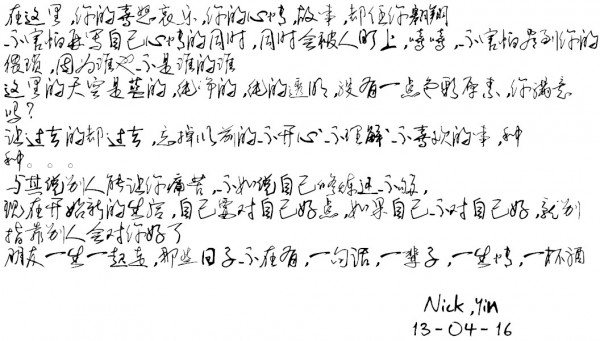 在这里,你的喜怒哀乐,你的心情,故事,都任你翱翔
不害怕再写自己心情的同时,同时会被人盯上,嘻嘻,不害怕看到你的
猥琐,因为谁也不是谁的谁
这里的天空是蓝的,纯净的,纯的透明,没有一点色彩原素,你满意
吗?
让过去的都过去,忘掉以前的不开心不理解不喜欢的事,种
种。。。
与其说别人能让你痛苦,不如说自己的修炼还不够,
现在开始新的生活,自己要对自己好点,如果自己不对自己好,就别
指靠别人会对你好了
朋友一生一起走,那些日子不在有,一句话,一辈子,一生情,一杯酒
Nick,Yin
13-04-16